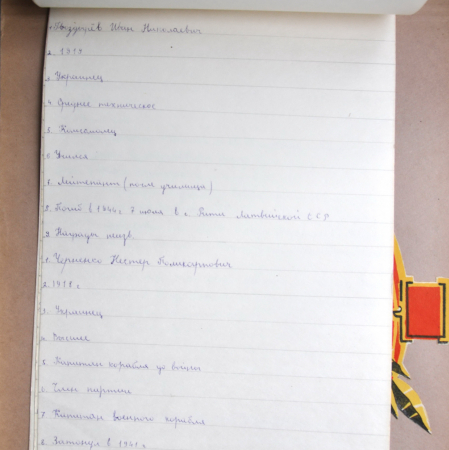 Иван Николаевич
2. 1919
3. Украинец
4. Среднее техническое
5. Комсомолец
6. Учился
7. Лейтенант (после училища)
8. Погиб в 1944 г. 7 июля в г. Латвийской ССР
9. Награды неизв.
1. Черненко Нестер Поликарпович
2. 1918 г
3. Украинец
4. Высшее
5. Капитан корабля до войны
6. Член партии
7. Капитан военного корабля
8. Затонул в 1941 г